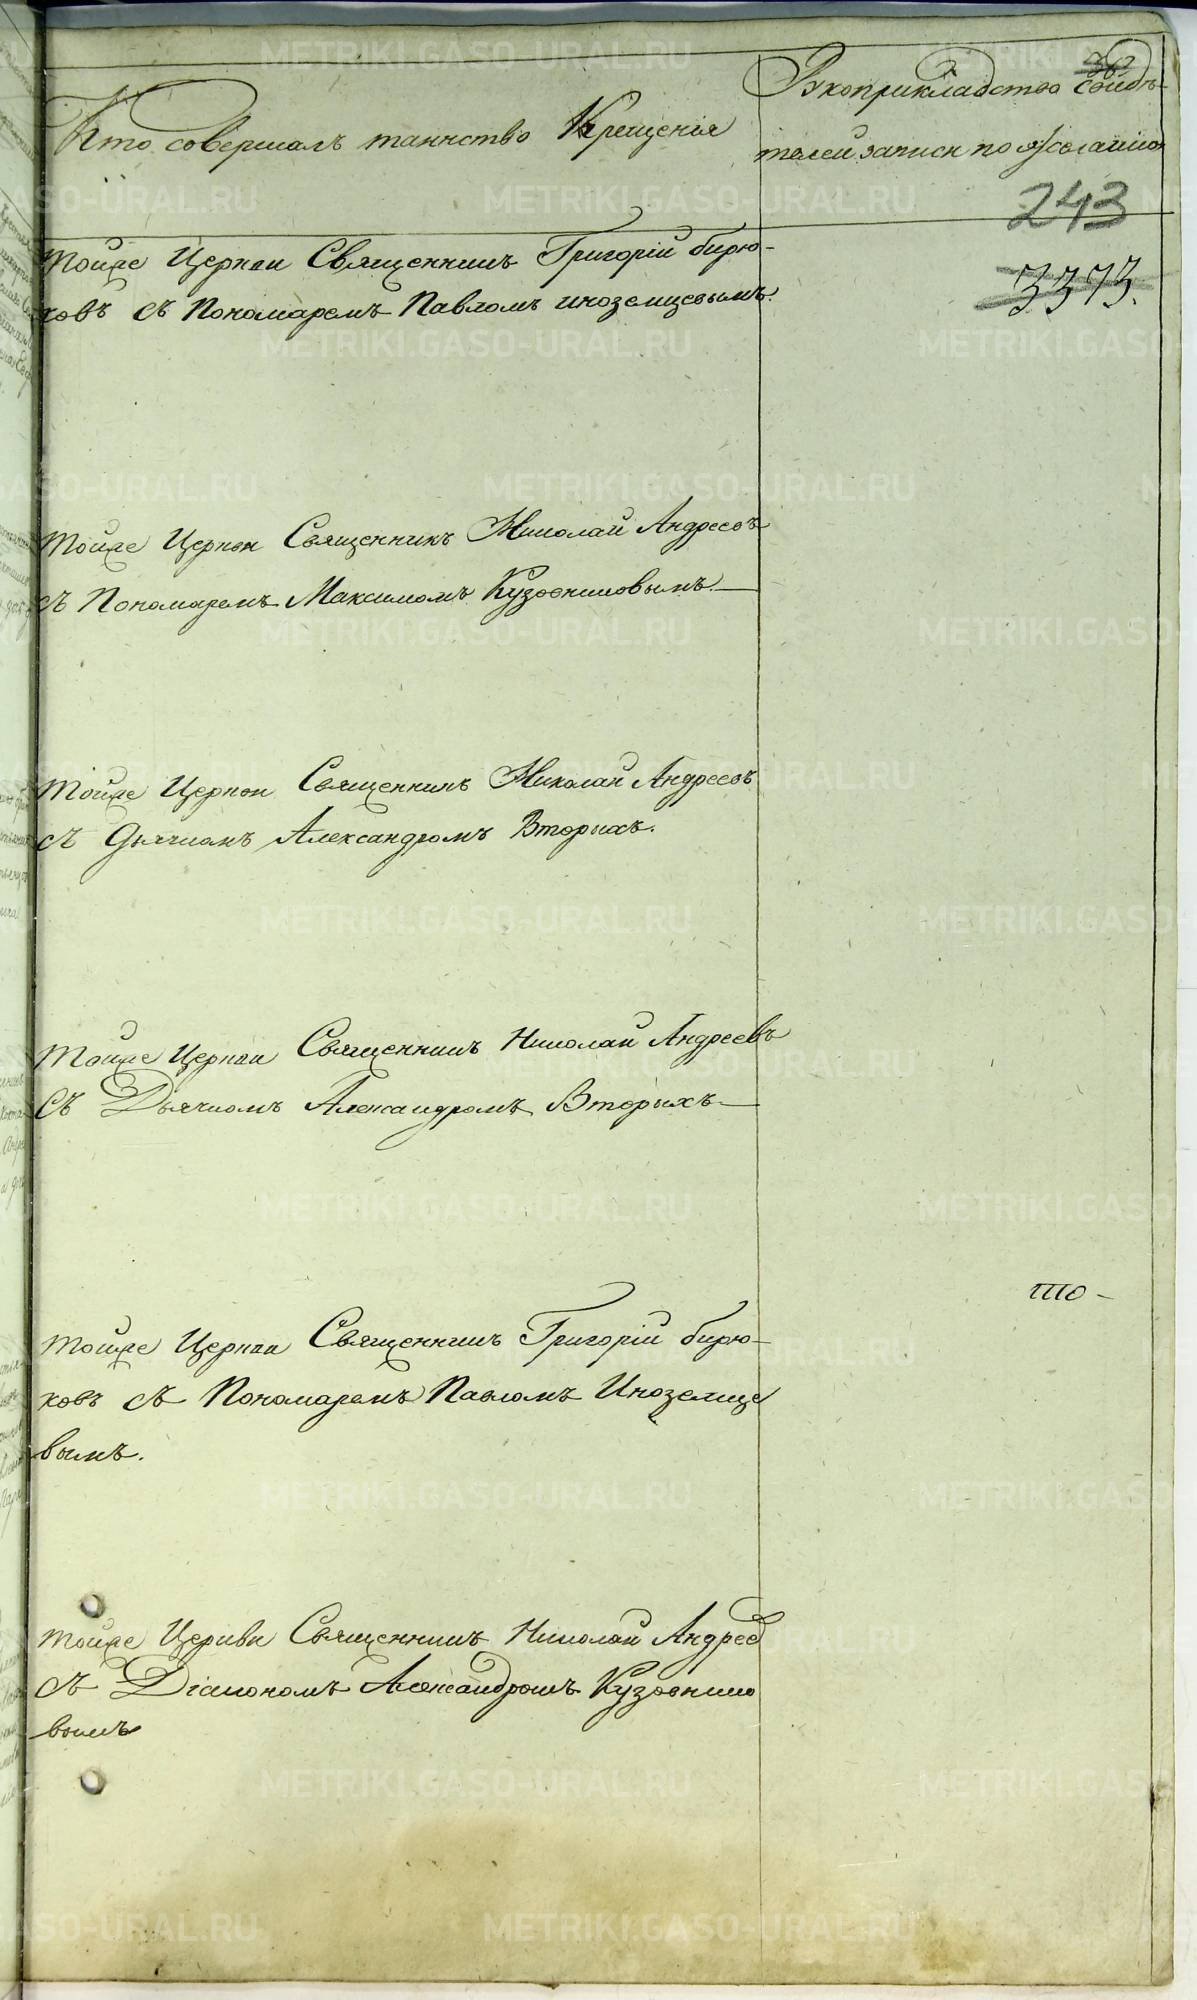 Кто совершалъ таинство Крещенія
Рукоприкладство свидѣ-
телей записи по желанію
243
3373.
тойже Церкви Священникъ Григорій бирю-
ковъ съ Пономаремъ Павломъ иноземцевымъ.
тойже Церкви Священникъ Николай Андреевъ
съ Пономаремъ Максимомъ Кузовниковымъ.
тойже Церкви Священникъ Николай Андреевъ
съ Дьячкомъ Александромъ Вторыхъ.
тойже Церкви Священникъ Николай Андреевъ
съ Дьячкомъ Александромъ Вторыхъ
тойже Церкви Священникъ Григорій бирю-
ковъ съ Пономаремъ Павломъ Иноземце
вымъ.
тойже Церкви Священникъ Николай Андреевъ
съ Діакономъ Александромъ Кузовнико
вымъ
METRIKI.GASO-URAL.RU